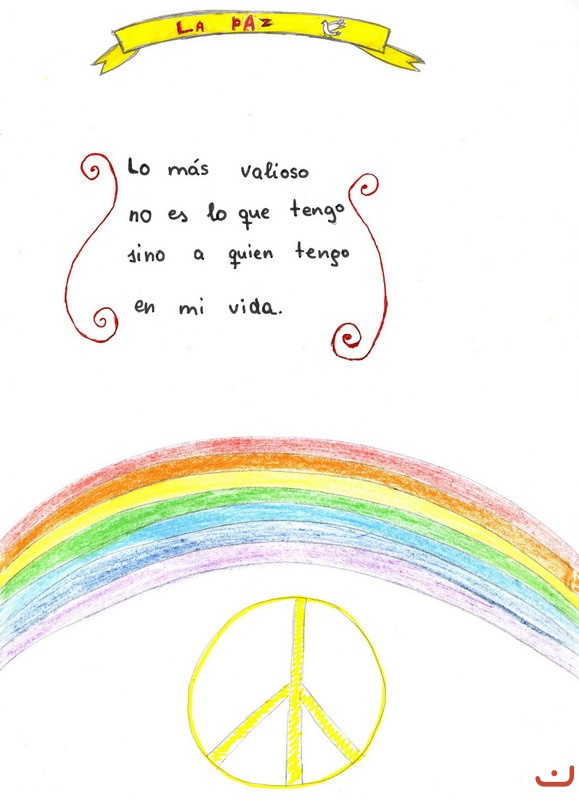 LA PAZ
Lo más valioso
no es lo que tengo
sino a quien tengo
en mi vida.